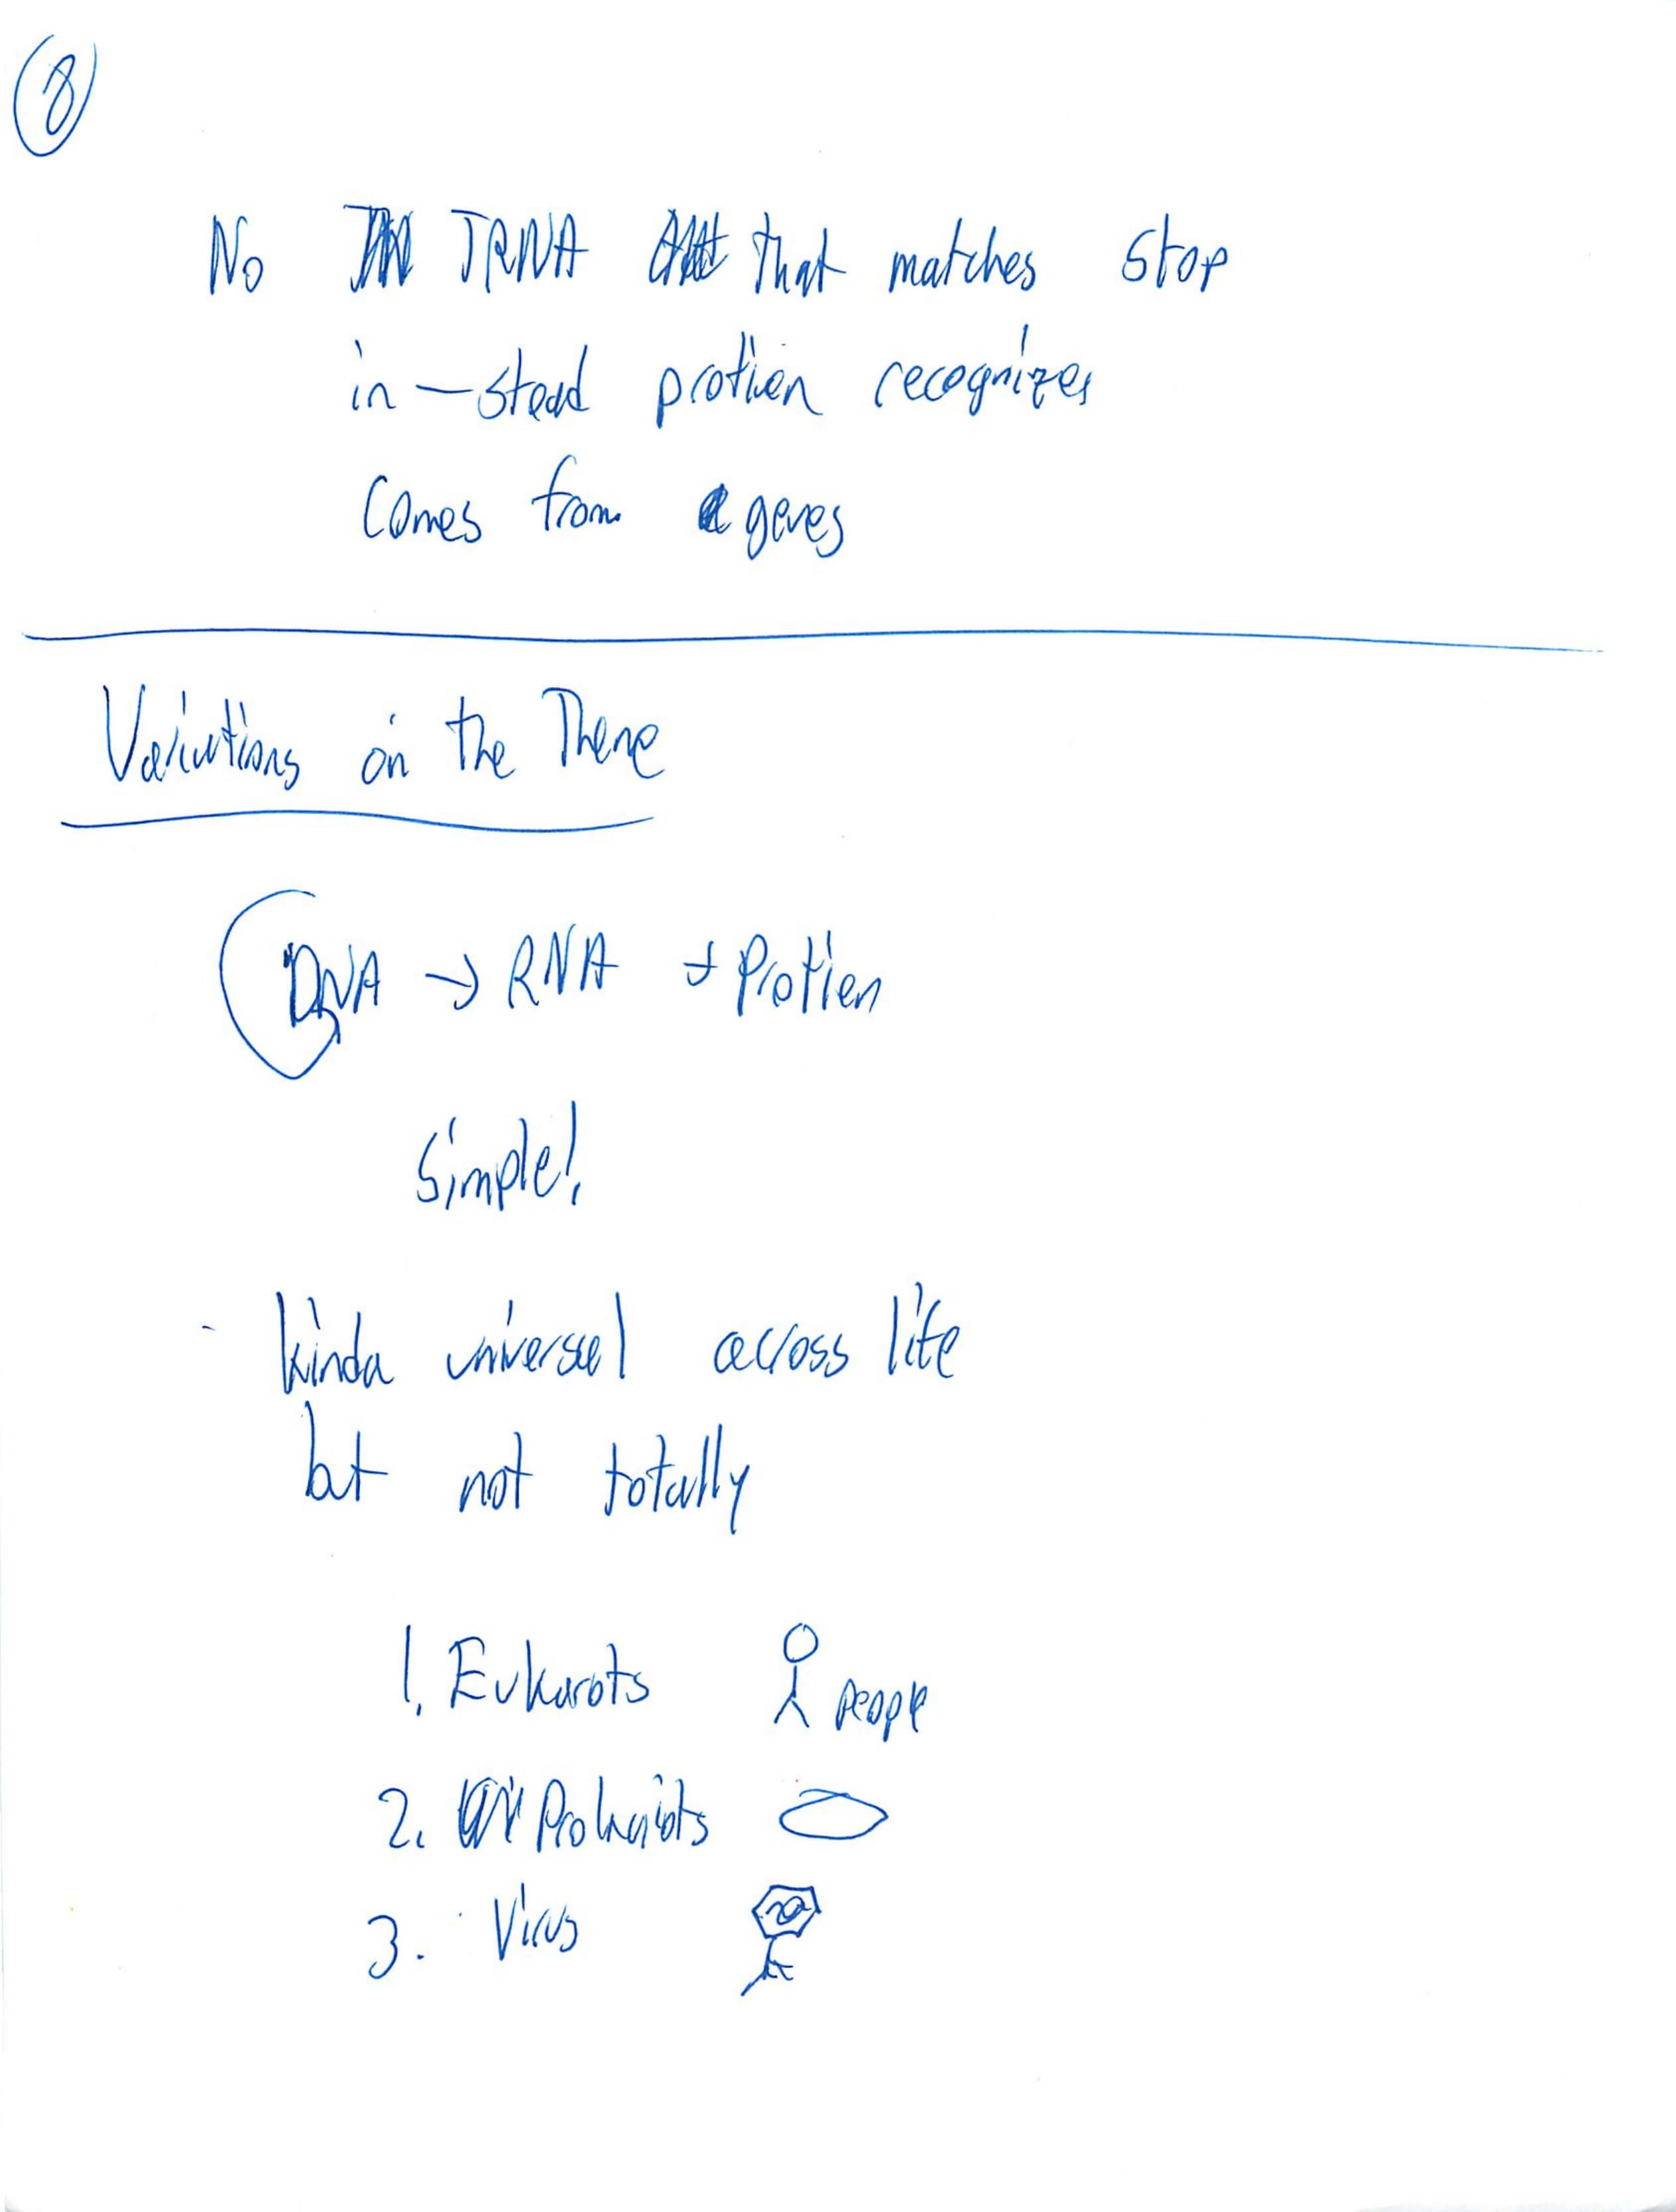 8
No TRNA that matches stop
in-stead protien recognizes
comes from genes
Variations on the Theme
DNA → RNA → Protien
Simple!
- kinda universal across life
but not totally
1. Eukarots people
2. Prokariots
3. Virus